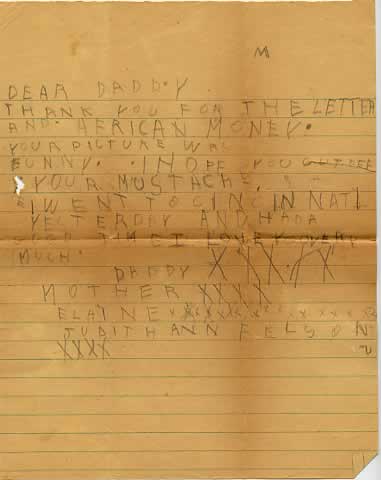 M
DEAR DADDY
THANK YOU FOR THE LETTER
AND AFRICAN MONEY.
YOUR PICTURE WAS
FUNNY. I HOPE YOU
YOUR MUSTACHE,
I WENT TO CINCINNATI
YESTERDAY AND HADA
GOOD TIME I LOVE YOU VERY
MUCH.
DADDY XXXXX
MOTHER XXXX
ELAINE XXXXXXXXXXXXX
JUDITH ANN FELSON
XXXX